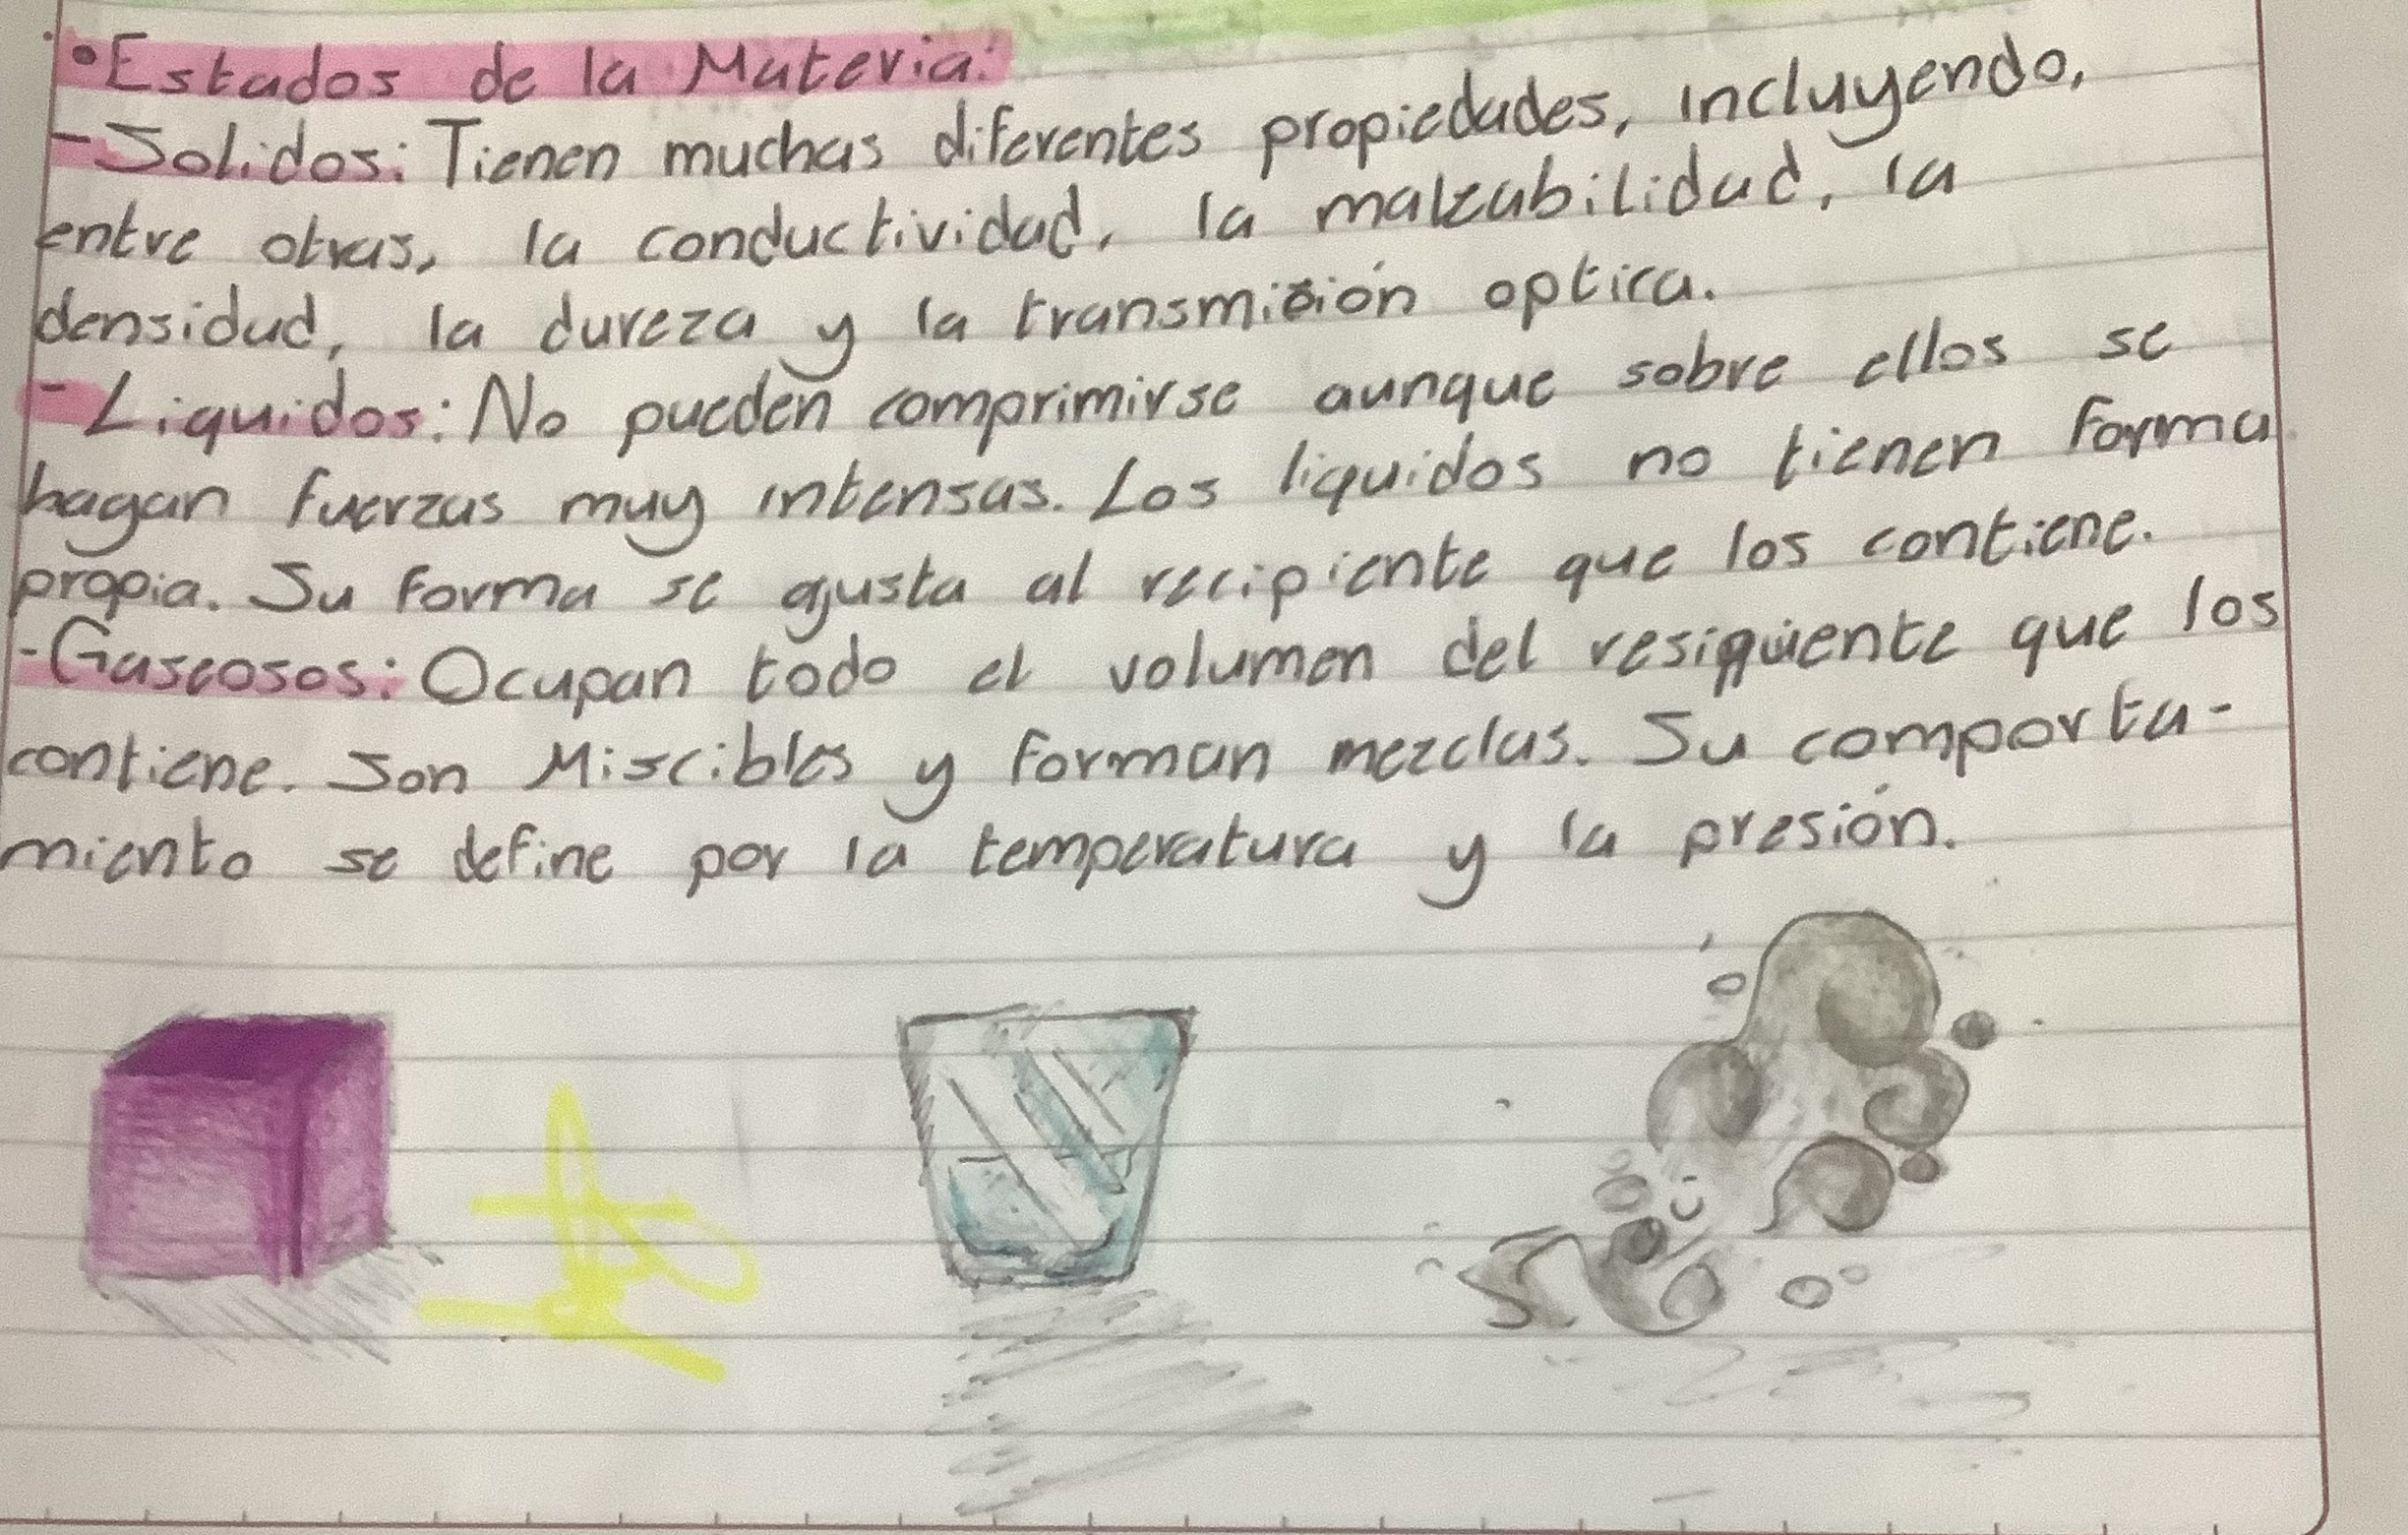 •Estados de la Materia:
-Solidos: Tienen muchas diferentes propiedades, incluyendo,
entre otras, la conductividad, la maleabilidad, la
densidad, la dureza y la transmición optica.
-Liquidos: No pueden comprimirse aunque sobre ellos se
hagan fuerzas muy intensas. Los liquidos no tienen forma
propia. Su forma se ajusta al recipiente que los contiene.
-Gaseosos: Ocupan todo el volumen del que los
contiene. Son Miscibles y forman mezclas. Su comporta-
miento se define por la temperatura y la presión.